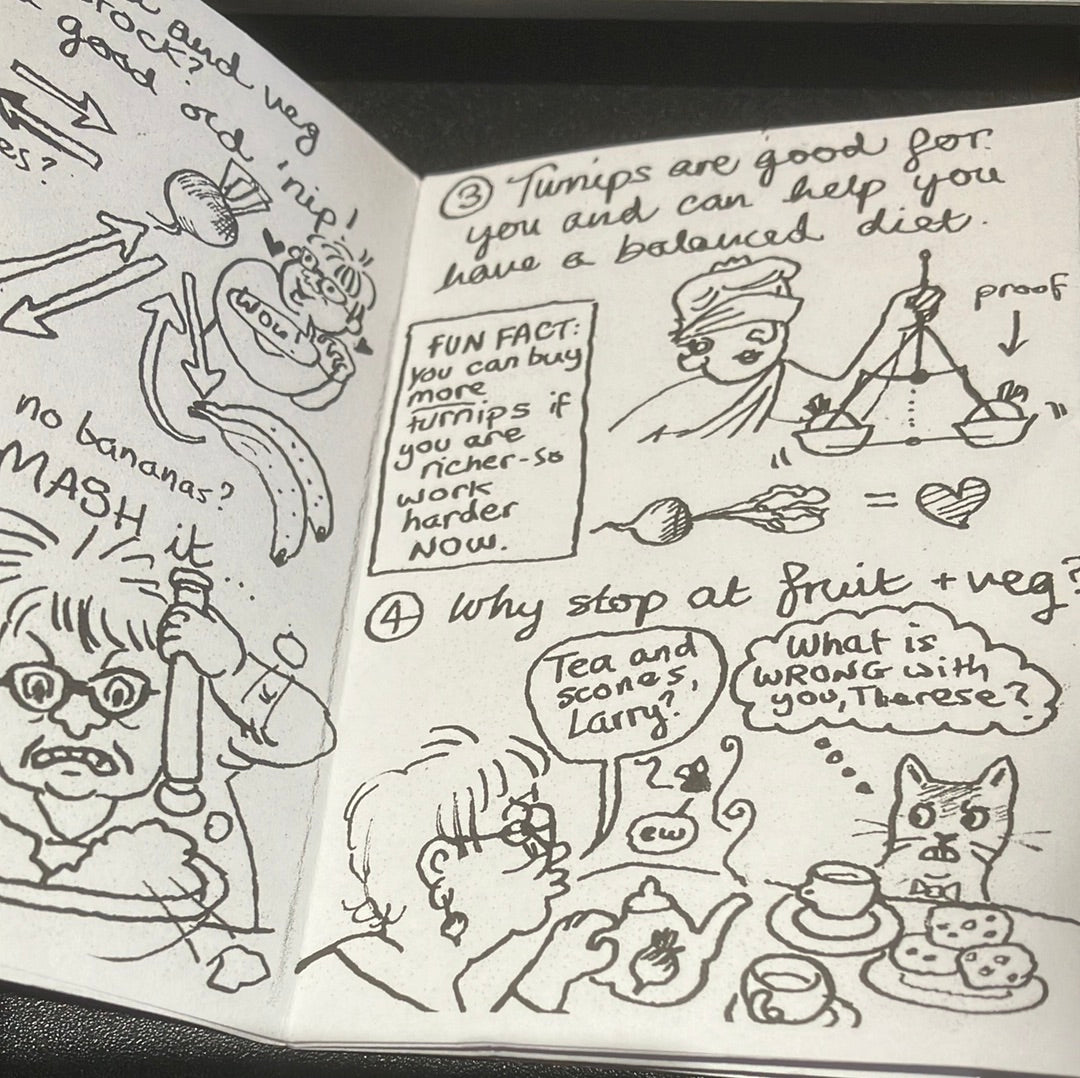 and veg
rock?
good old 'nip!
es?
WOW!
no bananas?
MASH it...
③ Turnips are good for
you and can help you
have a balanced diet.
proof
FUN FACT:
you can buy
more
turnips if
you are
richer-so
work
harder
NOW.
=
④ Why stop at fruit + veg?
Tea and
scones,
Larry?
What is
WRONG with
you, Therese?
ew